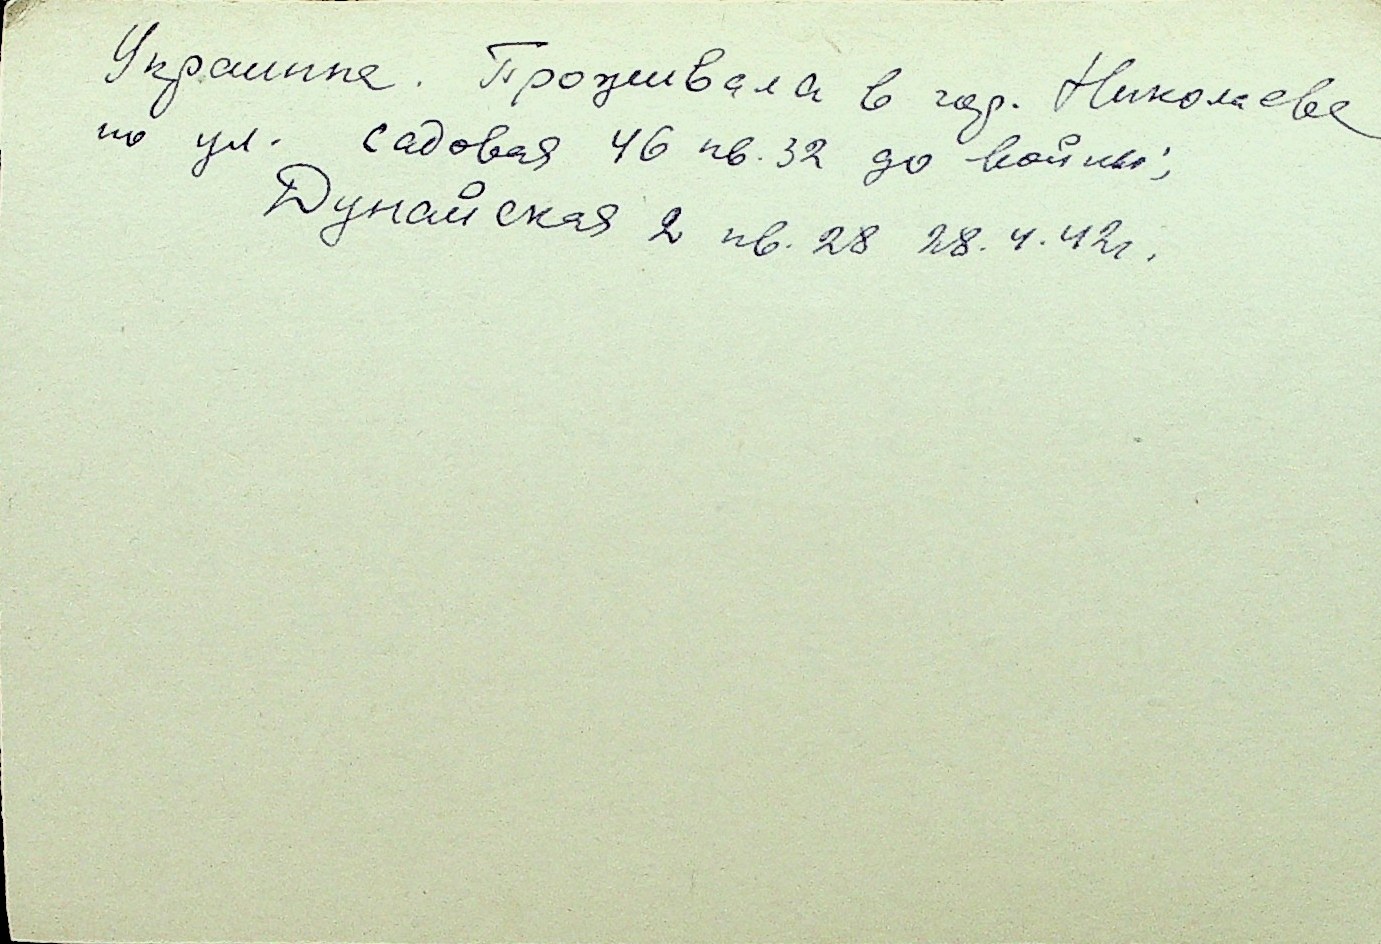 Украинка. Проживала в гор. Николаеве
по ул. Садовая 46 кв. 32 до войны;
Дунайская 2 кв. 28 28.4.42г.